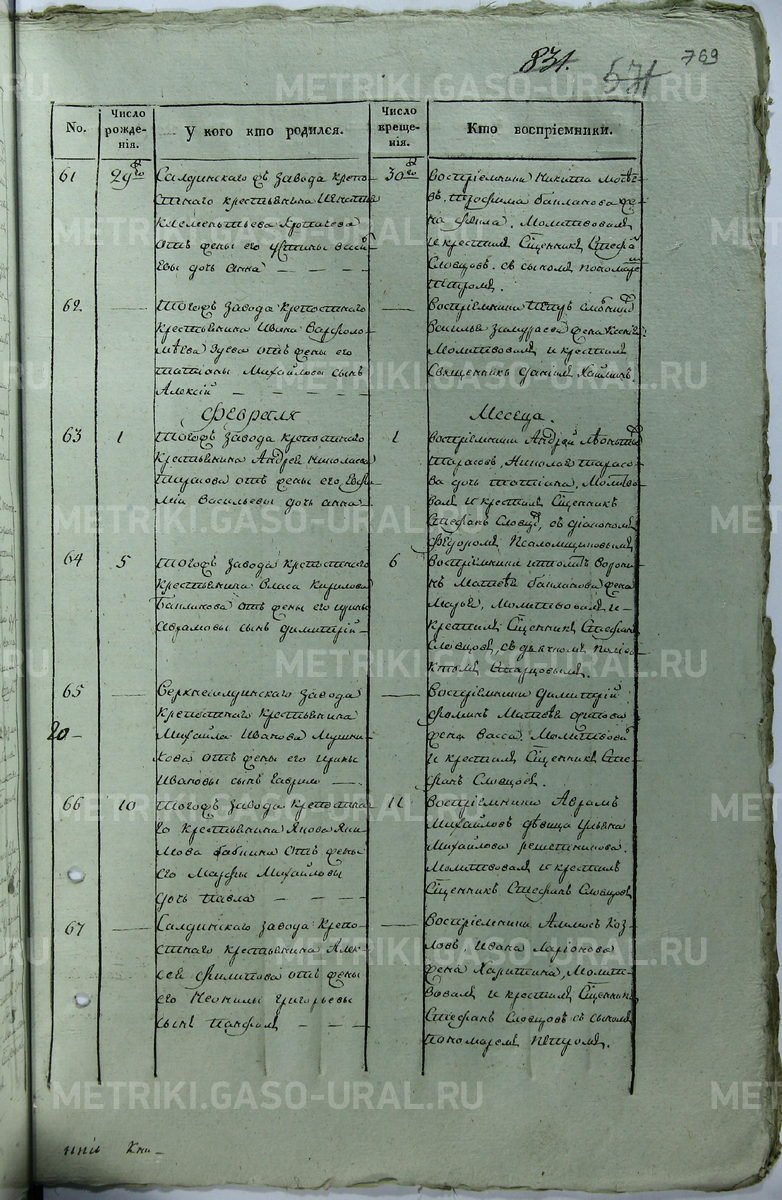 831.
571
769
No.
Число рожденія.
У кого кто родился.
Число крещенія.
Кто воспріемники.
61
29го
Салдинскаго жъ завода крепо-
стнаго крестьянина
Клементьева
отъ жены его Устины Васи
евы дочь Анна
30го
Воспріемники Никита
въ, Трофима Балакова же
на. Молитвовалъ
и крестилъ Сщенникъ Стефа
Словцовъ. съ сыномъ пономаре
Петромъ.
62
Тогожъ завода крепостнаго
крестьянина Ивана Варфоло-
мѣева Зуева отъ жены его
Татіоны Михайловы сынъ
Алексій
Воспріемники Петръ
Василья жена
Молитвовалъ и крестилъ
Священникъ Даніилъ
Февраля
Месеца.
63
1
Тогожъ завода крепостнаго
крестьянина Андрея Николаева
отъ жены его Евфи
міи Васильевы дочь Анна
1
Воспріемники Андрей
Тарасовъ, Николая Тарасо-
ва дочь Татіана, Молитво
валъ и крестилъ Сщенникъ
Стефанъ Словцо, съ діакономъ
Федоромъ Псаломщиковымъ
64
5
Тогожъ завода крепостнаго
крестьянина Власа Кирилова
Балакова отъ жены его Ирины
Аврамовы сынъ Димитрій
6
Воспріемники
нъ Матвея Балакова жена
Марья, Молитвовалъ и
крестилъ Сщенникъ Стефанъ
Словцовъ, съ дьячкомъ
Старцовымъ.
65
Верхнесалдинскаго завода
крепостнаго крестьянина
Михайла Иванова
отъ жены его Ирины
Ивановы сынъ Гаврило
Воспріемники Димитрій
Фоминъ Матвея
жена Васса. Молитвовал
и крестилъ Сщенникъ Сте-
фанъ Словцовъ.
20
66
10
Тогожъ завода крепостна-
го крестьянина Якова Яки-
мова Бабкина отъ жены
его Марфы Михайловы
дочь Павла
11
Воспріемники Аврамъ
Михайловъ дѣвица Ульяна
Михайлова Решетникова.
Молитвовалъ и крестилъ
Сщенникъ Стефанъ Словцовъ
67
Салдинскаго завода крепо-
стнаго крестьянина Алек-
сея Филипова отъ жены
его Неонилы Григорьевы
сынъ Панфилъ
Воспріемники Козловъ, Ивана Ларіонова
жена Харитина, Молит-
вовалъ и крестилъ Сщенникъ
Стефанъ Словцовъ съ сыномъ
пономаремъ Петромъ.
Кни
METRIKI.GASO-URAL.RU